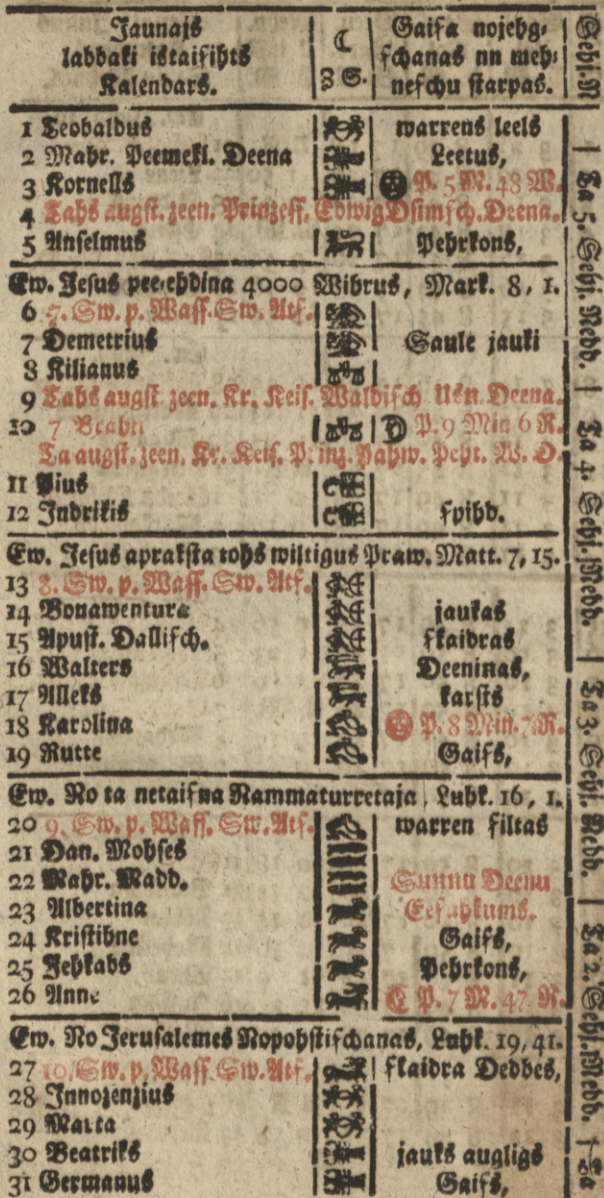 Jaunajs labbaki istaisihts Kalendars. | ☾ 3 S. | Gaisa nojehgschanas nn mehnefchu starpas.
1 Teobaldus | warrens leels
2 Mahr. Peemekl. Deena | Leetus,
3 Kornells | P. 5 M. 48 W.
4 Tahs augst. zeen. Prinzess. Edwig Dsimsch. Deena.
5 Anselmus | Pehrkons,
Ew. Jesus pee-ehdina 4000 Wihrus, Mark. 8, 1.
6 7. Sw. p. Wass. Sw. Ats.
7 Demetrius | Saule jauki
8 Kilianus
9 Tahs augst zeen. Kr. Keis. Waldisch Usn. Deena.
10 7 Brahli | P. 9 Min 6 R.
Ta augst. zeen. Kr. Keis. Prinz. Pahw. Peht. W. D.
11 Pius
12 Indrikis | spihd.
Ew. Jesus apraksta tohs wiltigus Praw. Matt. 7, 15.
13 8. Sw. p. Wass. Sw. Ats.
14 Bonawentura | jaukas
15 Apust. Dallisch. | skaidras
16 Walters | Deeninas,
17 Alleks | karsts
18 Karolina | P. 8 Min. 7 R.
19 Rutte | Gaiss,
Ew. No ta netaisna Nammaturretaja, Luhk. 16, 1.
20 9. Sw. p. Wass. Sw. Ats. | warren siltas
21 Dan. Mohses
22 Mahr. Madd. | Sunnu Deenu
23 Albertina | Eesahkums.
24 Kristihne | Gaiss,
25 Jehkabs | Pehrkons,
26 Anne | P. 7 M. 47 R.
Ew. No Jerusalemes Nopohstischanas, Luhk. 19, 41.
27 10. Sw. p. Wass. Sw. Ats. | skaidra Debbes,
28 Innozenzius
29 Marta
30 Beatriks | jauks augligs
31 Germanus | Gaiss,
Sehj. M | Ta 5. Sehj. Mehd. | Ta 4. Sehj. Mehd. | Ta 3. Sehj. Mehd. | Ta 2. Sehj. Mehd. | Ta